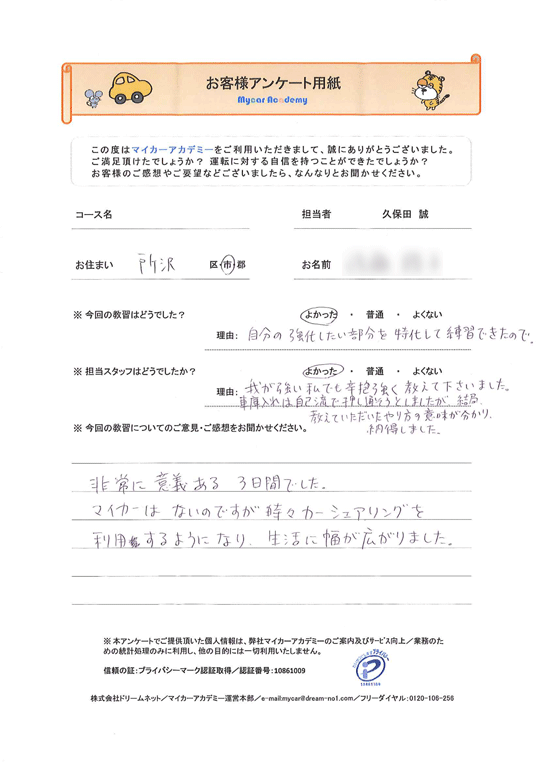 お客様アンケート用紙
Mycar Academy
この度はマイカーアカデミーをご利用いただきまして、誠にありがとうございました。
ご満足頂けたでしょうか? 運転に対する自信を持つことができたでしょうか?
お客様のご感想やご要望などございましたら、なんなりとお聞かせください。
コース名 担当者 久保田 誠
お住まい 所沢 区・市・郡 お名前
※ 今回の教習はどうでした? よかった ・ 普通 ・ よくない
理由: 自分の強化したい部分を特化して練習できたので。
※ 担当スタッフはどうでしたか? よかった ・ 普通 ・ よくない
理由: 我が強い私でも辛抱強く教えて下さいました。
車庫入れは自己流で押し通そうとしましたが、結局、
教えていただいたやり方の意味が分かり、
納得しました。
※ 今回の教習についてのご意見・ご感想をお聞かせください。
非常に意義ある3日間でした。
マイカーはないのですが時々カーシェアリングを
利用するようになり、生活に幅が広がりました。
※ 本アンケートでご提供頂いた個人情報は、弊社マイカーアカデミーのご案内及びサービス向上/業務のた
めの統計処理のみに利用し、他の目的には一切利用いたしません。
信頼の証:プライバシーマーク認証取得/認証番号:10861009
株式会社ドリームネット/マイカーアカデミー運営本部/e-mail:mycar@dream-no1.com/フリーダイヤル:0120-106-256